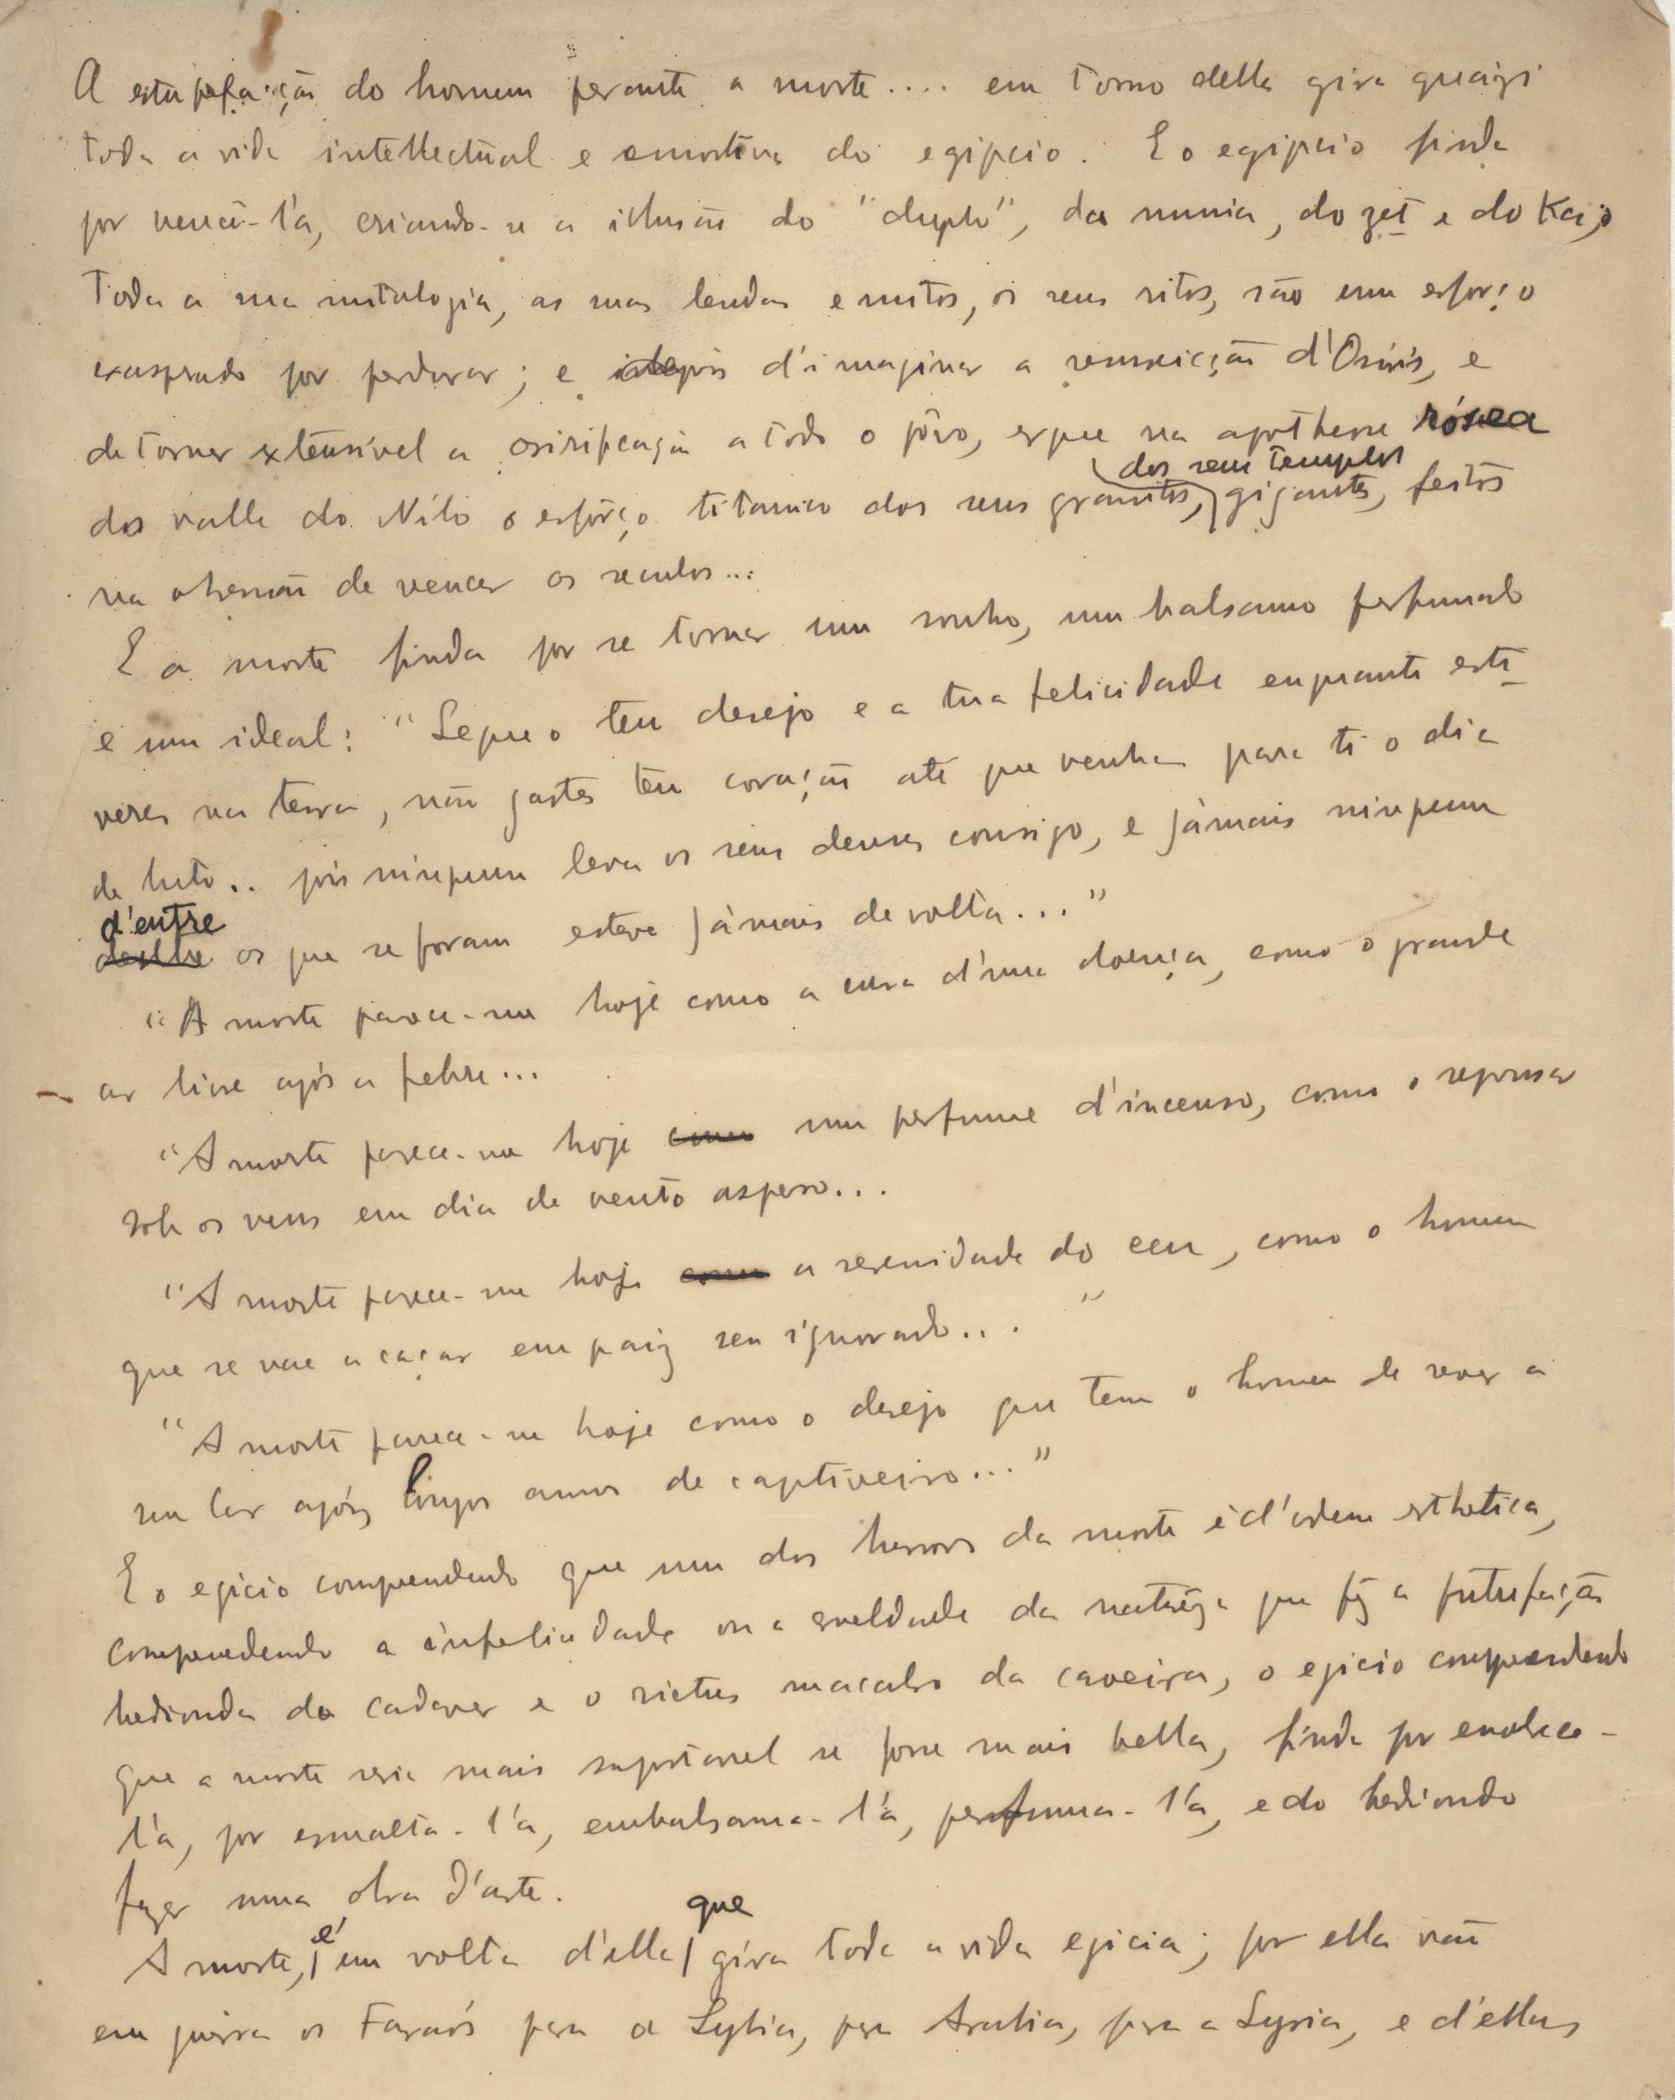 A estupefacção do homem perante a morte.... em torno della gira quasi
toda a vida intellectual e emotiva do egipcio. E o egipcio finda
por vencê-l'a, criando-se a illusão do "duplo", da mumia, do zet e do Ka;
Toda a sua mitologia, as suas lendas e mitos, os seus ritos, são um esforço
exasperado por perdurar; e depois d'imaginar a resurreicção d'Osiris, e
de tornar extensível a osirificação a todo o pôvo, ergue na apotheose rósea
dos valle do Nilo o esfôrço titanico dos seus granitos, dos seus templos gigantes, feitos
na obsessão de vencer os seculos...
E a morte finda por se tornar um sonho, um balsamo perfumado
e um ideal: "Segue o teu desejo e a tua felicidade enquanto esti-
veres na terra, não gastes teu coração até que venha para ti o dia
de luto.. pois ninguem leva os seus deuses consigo, e jámais ninguem
d'entre os que se foram esteve jámais de volta..."
"A morte parece-me hoje como a cura d'uma doença, como o grande
ar livre após a febre...
"A morte parece-me hoje um perfume d'incenso, como o repousar
sob os veus em dia de vento aspero...
"A morte parece-me hoje a serenidade do ceu, como o homem
que se vae a caçar em paiz seu ignorado..."
"A morte parece-me hoje como o desejo que tem o homem de rever a
seu lar após longos annos de captiveiro..."
E o egicio comprendendo que um dos horrores da morte é d'ordem esthetica,
comprendendo a infelicidade ou a crueldade da naturêza que fêz a putrefacção
hedionda do cadaver e o rictus macabro da caveira, o egicio comprendendo
que a morte seria mais suportavel se fosse mais bella, finda por
l'a, por esmalta-l'a, embalsama-l'a, perfuma-l'a, e do hediondo
fazer uma obra d'arte.
A morte, é em volta d'ella que gira toda a vida egicia; por ella vão
em guerra os Faraós para a Lybia, para Arabia, para a Syria, e d'ellas